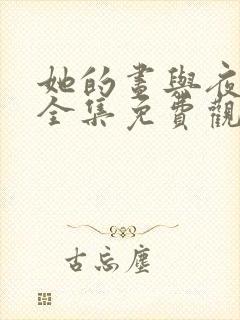 她的畫與夜
全集免費觀
古忘塵